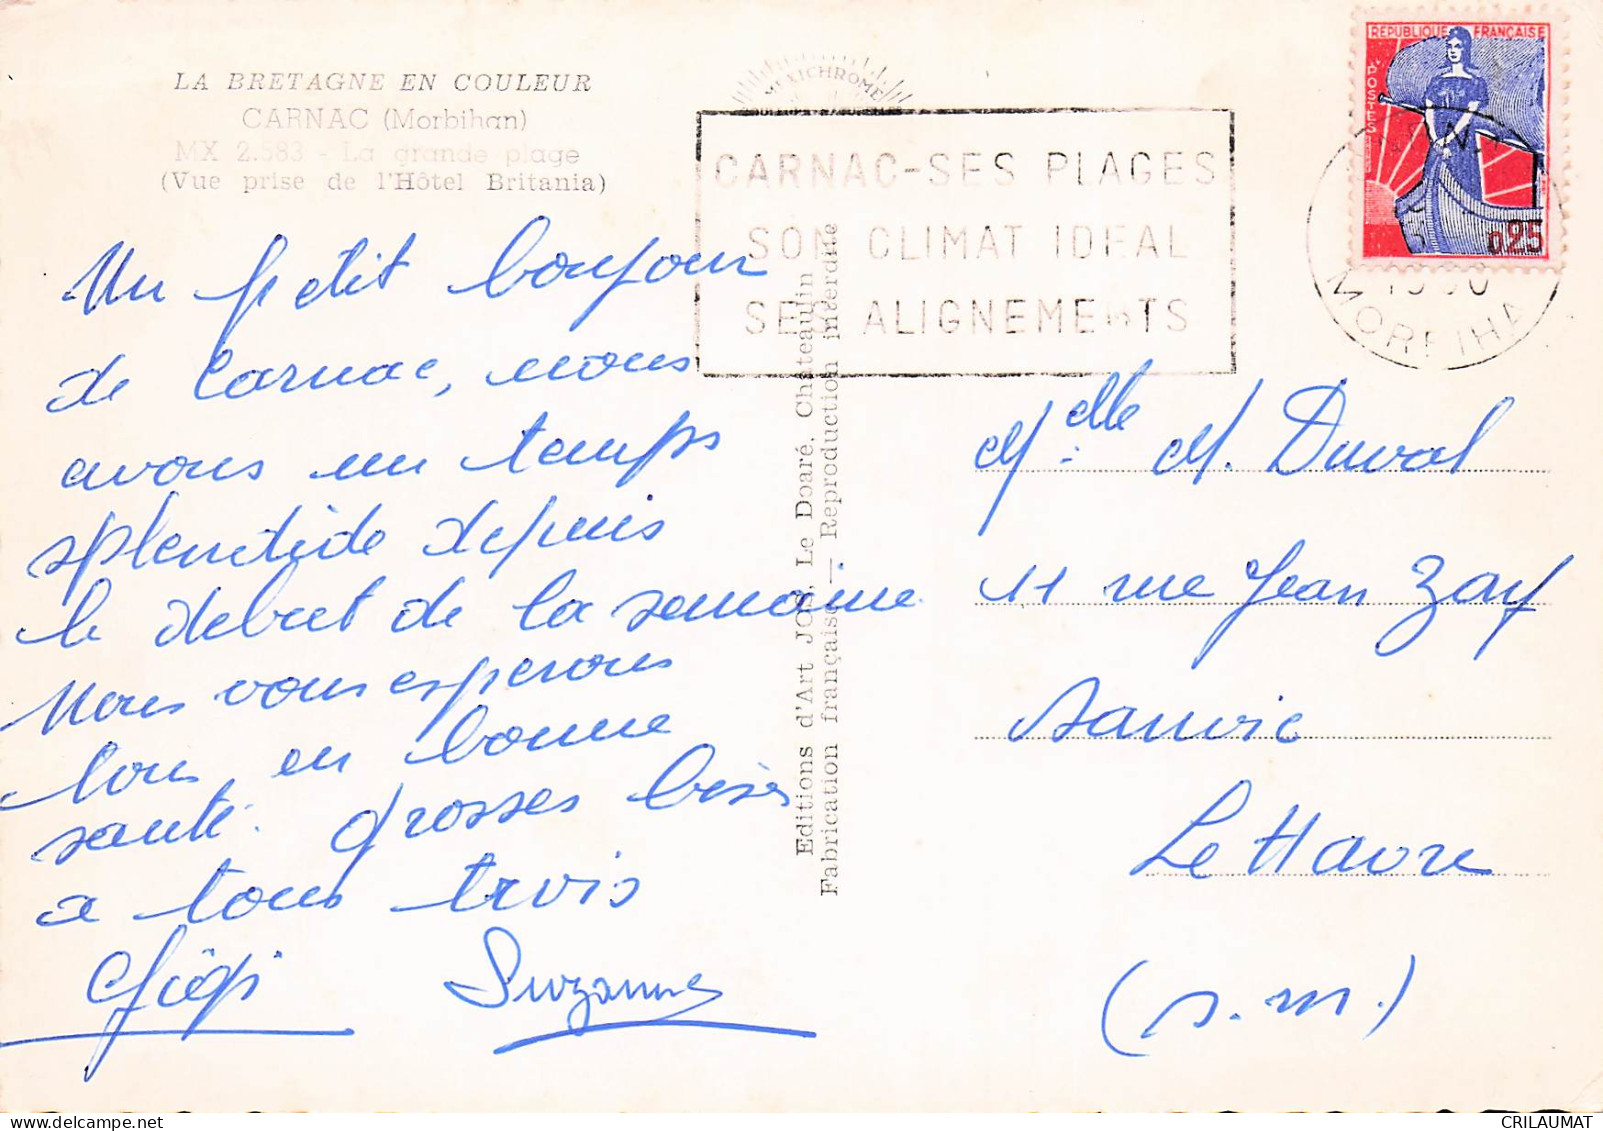 LA BRETAGNE EN COULEUR
CARNAC (Morbihan)
MX 2.583 - La grande plage
(Vue prise de l'Hôtel Britania)
Un petit bonjour
de Carnac, nous
avons un temps
splendide depuis
le debut de la semaine
Nous vous esperons
tous en bonne
santé. Grosses bises
a tous trois
Suzanne
Editions d'Art JOS, Le Doaré, Chateaulin
Fabrication française — Reproduction interdite
MEXICHROME
CARNAC-SES PLAGES
SON CLIMAT IDEAL
SES ALIGNEMENTS
REPUBLIQUE FRANÇAISE
POSTES
0,25
MORBIHAN
Melle M. Duval
11 rue Jean Zay
Sanvic
Le Havre
(S.M.)
CRILAUMAT